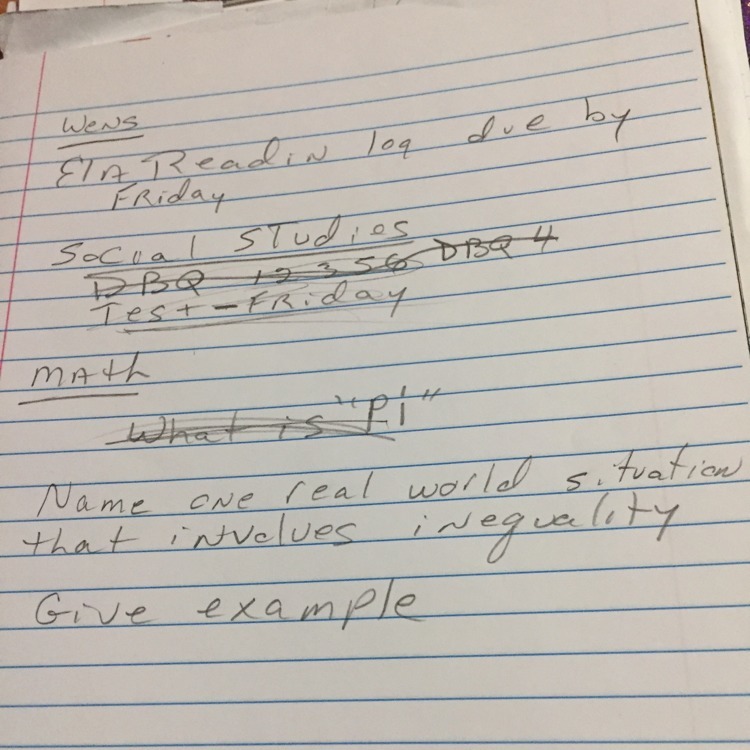 Wens
ELA Readin log due by
Friday
Social Studies
DBQ 1 2 3 5 6 DBQ 4
Test - Friday
Math
What is "Pi"
Name one real world situation
that involves inequality
Give example